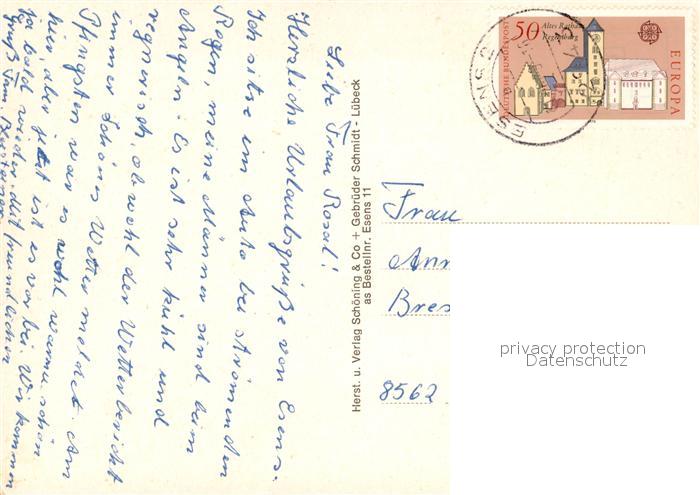 Liebe Frau Rosal!
Herzliche Urlaubsgrüße von Esens.
Ich sitze im Auto bei strömenden
Regen, meine Männer sind beim
Angeln. Es ist sehr kühl und
regnerisch, obwohl der Wetterbericht
immer schönes Wetter meldet. Am
Pfingsten war es wohl warm u. schön
hier, aber jetzt ist es vorbei. Wir kommen
ja bald wieder. Mit freundlichen
Gruß Fam.
Herst. u. Verlag Schöning & Co + Gebrüder Schmidt - Lübeck
as Bestellnr. Esens 11
50
Altes Rathaus
Regensburg
DEUTSCHE BUNDESPOST
EUROPA
ESENS
Frau
Ann
Bres
8562
privacy protection
Datenschutz